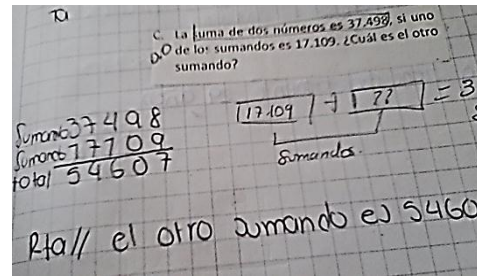 C. La suma de dos números es 37.498, si uno
de los sumandos es 17.109. ¿Cuál es el otro
sumando?
17.109 + ?? = 3
Sumandos.
Sumando 37498
Sumando 17109
total 54607
Rta// el otro sumando es 5460